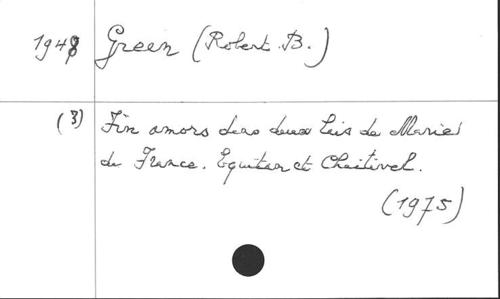 1948 Green (Robert B.)
(3) Fin amors dans deux lais de Marie
de France. Equitan et Chaitivel.
(1975)